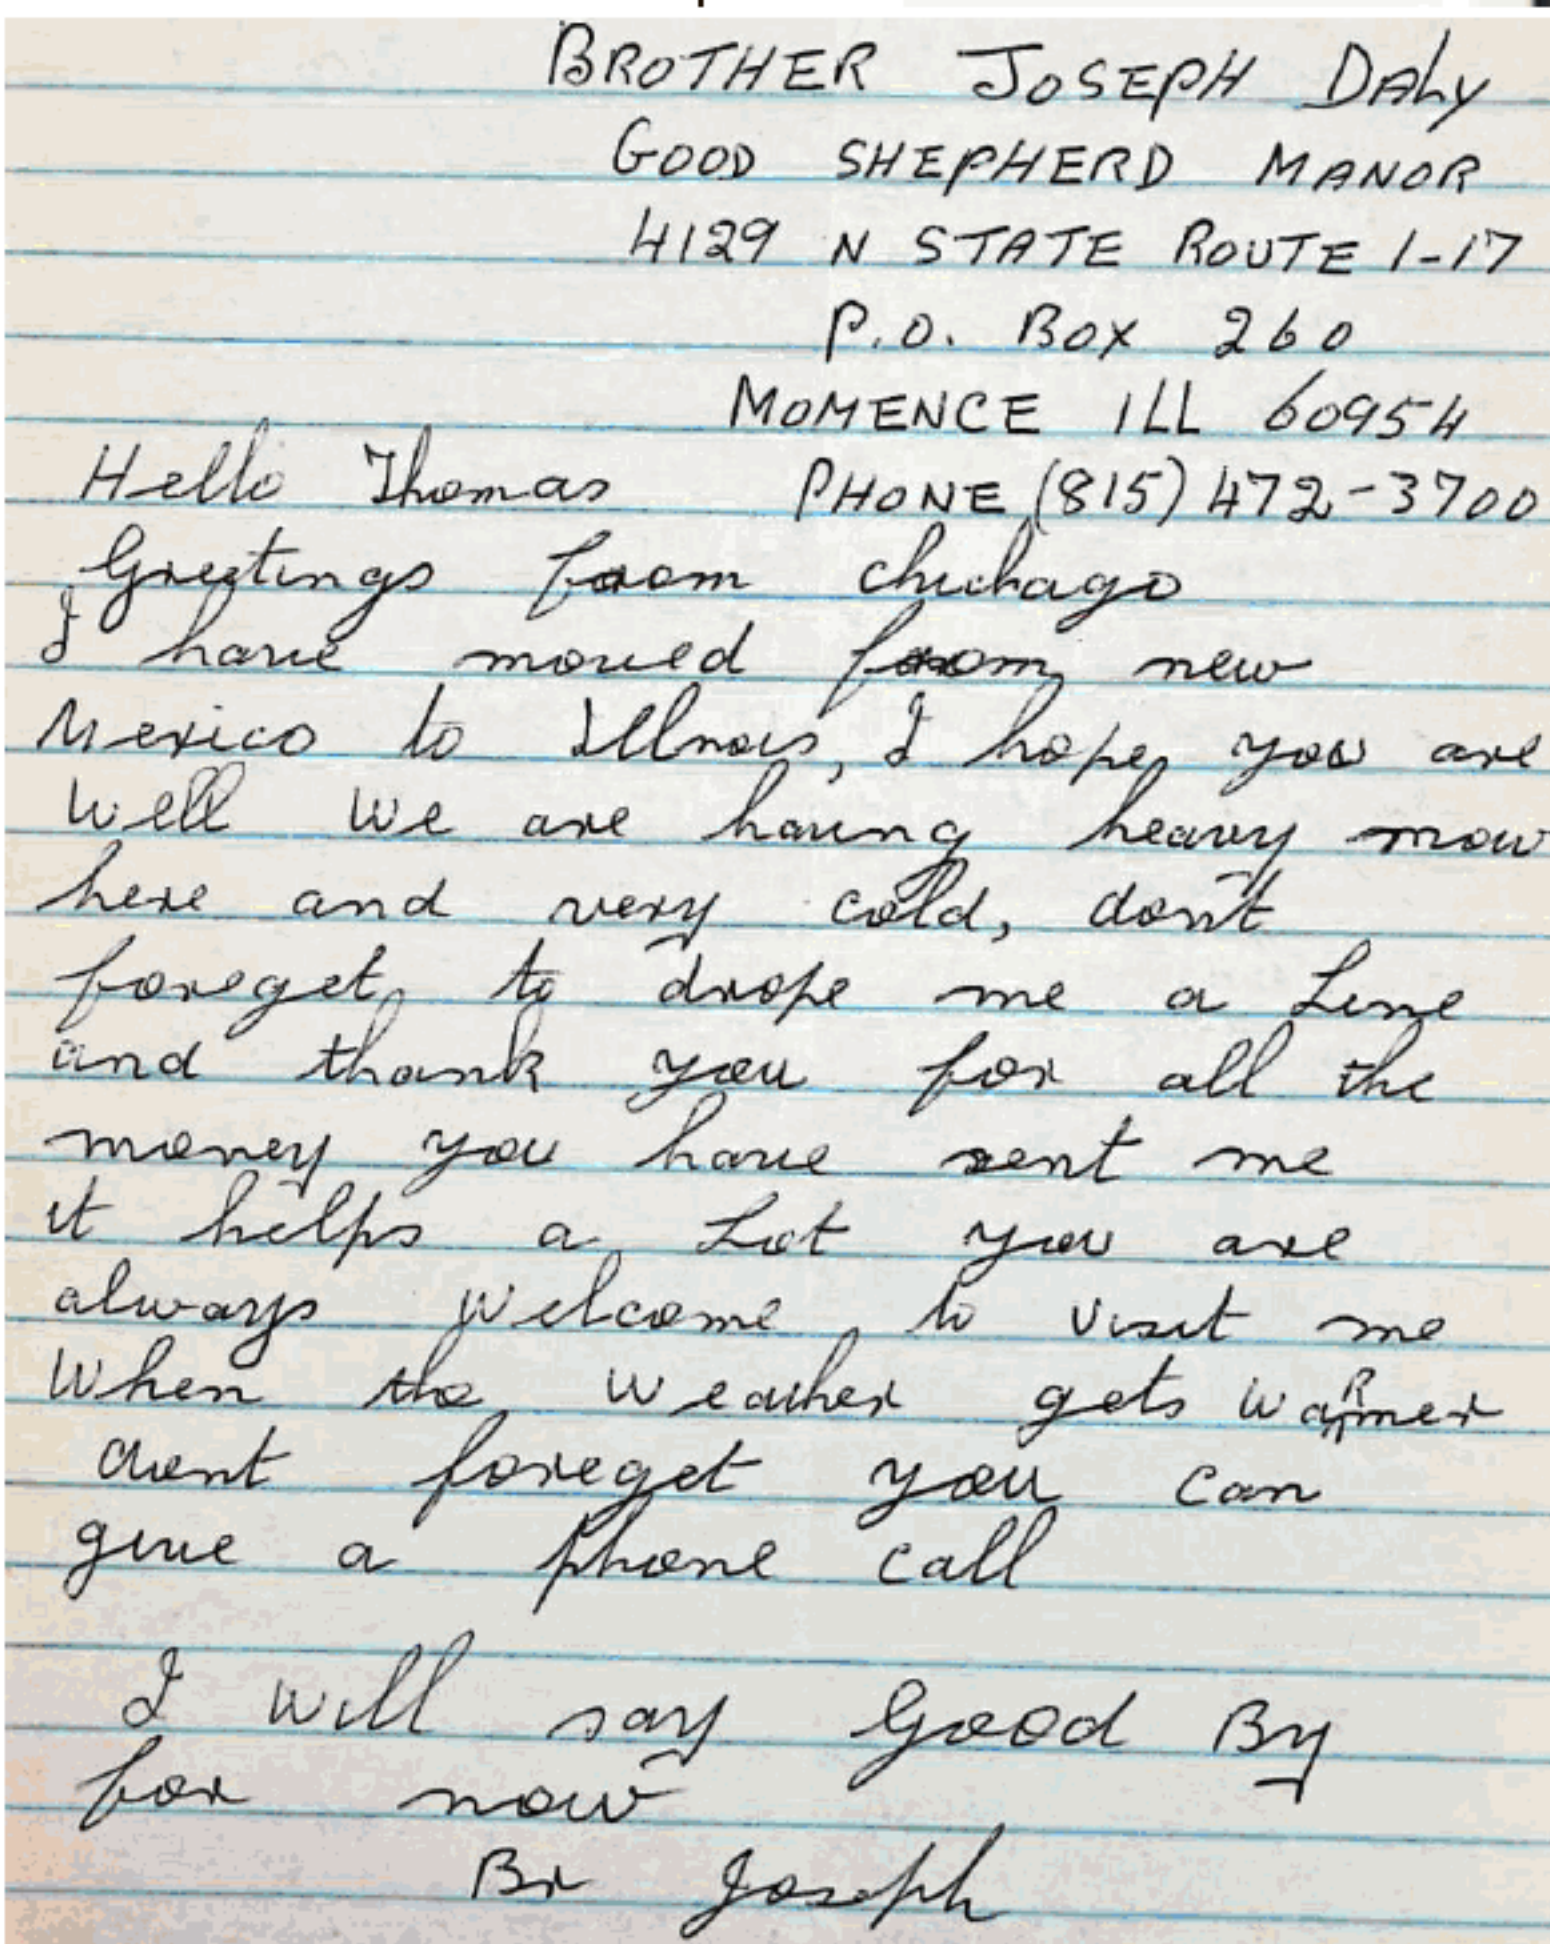 BROTHER JOSEPH DALY
GOOD SHEPHERD MANOR
4129 N STATE ROUTE 1-17
P.O. BOX 260
MOMENCE ILL 60954
PHONE (815) 472-3700
Hello Thomas
Greetings from chichago
I have moved from new
Mexico to Illnois, I hope you are
well we are having heavy snow
here and very cold, don't
foreget to drope me a Line
and thank you for all the
money you have sent me
it helps a Lot you are
always welcome to visit me
When the weather gets waRmer
dont foreget you can
give a phone call
I will say Good By
for now
Br Joseph